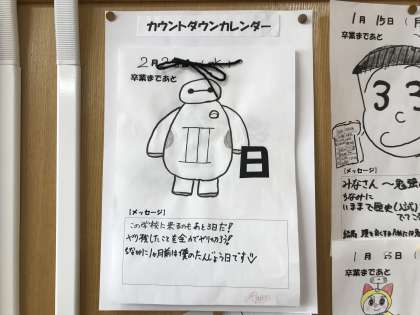 カウントダウンカレンダー
2月2
卒業まであと
III
日
[メッセージ]
この学校に来るのもあと3日だ!
やり残したことを全力でやりきろう!
ちなみに1ヶ月前は僕のたんじょう日です
1月15日
卒業まであと
33
みなさん ~勉強
ちなみに
いままで歴史(公式)
です?
1月
卒業まであと